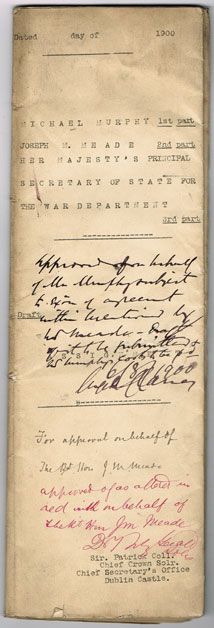 Dated day of 1900
MICHAEL MURPHY 1st part
JOSEPH M. MEADE 2nd part
HER MAJESTY'S PRINCIPAL
SECRETARY OF STATE FOR
THE WAR DEPARTMENT
3rd part
Approved on behalf
of Mr Murphy subject
to of agreement
within mentioned by
Mr Meade - Draft
Draft
of it to be submitted to
Mr Murphy's
1900
For approval on behalf of
The Rt Hon. J M Meade
approved of as altered in
red ink on behalf of
the Rt Hon JM Meade
Sir. Patrick Coll.
Chief Crown Solr.
Chief Secretary's Office
Dublin Castle.